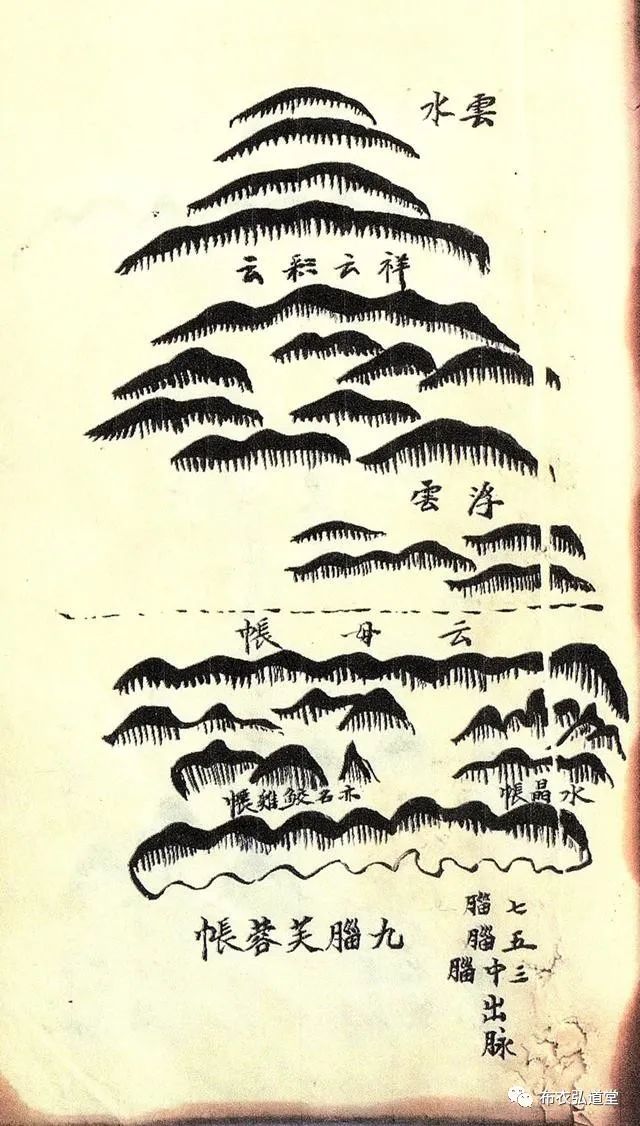 雲水
祥云彩云
浮雲
云母帳
水晶帳
亦名鮫帳
九腦芙蓉帳
七腦
五腦
三中腦
出
脉
布衣弘道堂